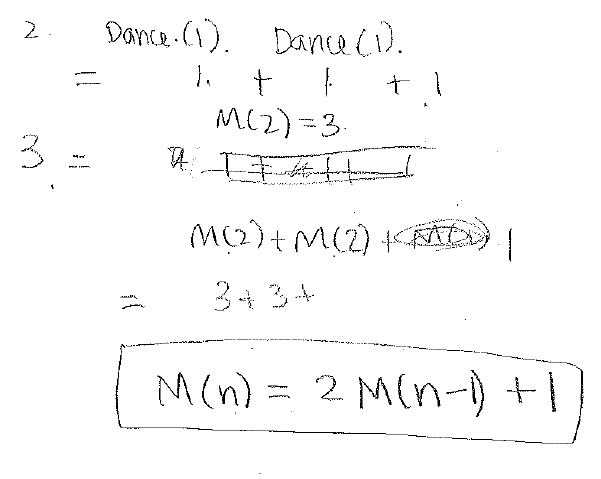 2. Dance.(1). Dance(1).
= 1. + 1. + 1
M(2)=3.
3. =
M(2)+M(2)+ 1
= 3+3+
M(n) = 2M(n-1) +1